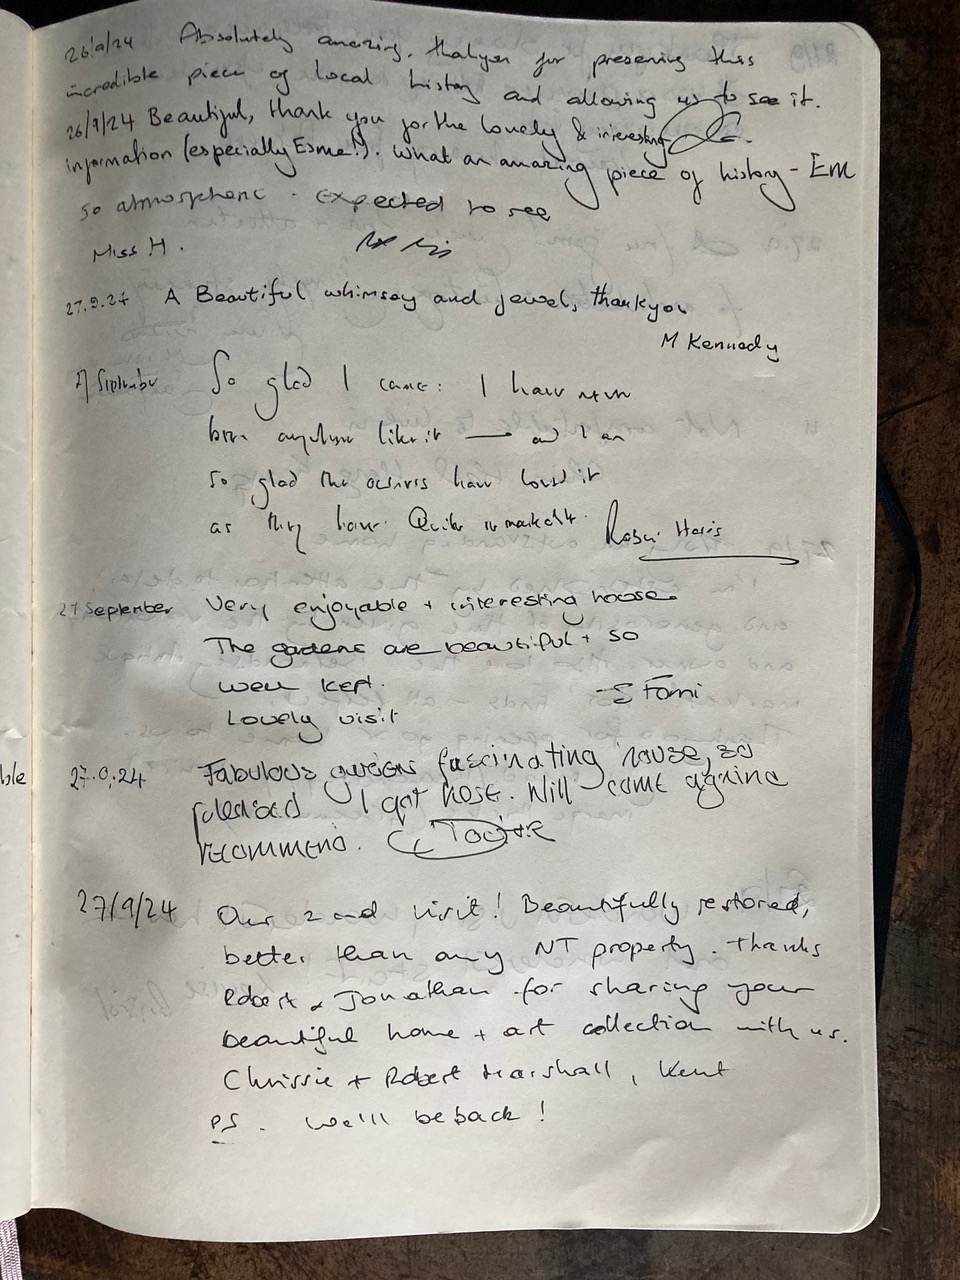 26/9/24 Absolutely amazing. Thankyou for preserving this
incredible piece of local history and allowing us to see it.
26/9/24 Beautiful, thank you for the lovely & interesting
information (especially Esme!). What an amazing piece of history - EM
so atmospheric. Expected to see
Miss H.
27.9.24 A Beautiful whimsey and jewel, thankyou
M Kennedy
27 September So glad I came: I have never
been anywhere like it — and I am
so glad the owners have loved it
as they have. Quite remarkable. Harris
27 September Very enjoyable + interesting house.
The gardens are beautiful + so
well kept.
Lovely visit
ble
27.9.24 Fabulous gardens fascinating house, so
pleased I got here. Will come again &
recommend.
27/9/24 Our 2nd visit! Beautifully restored,
better than any NT property. Thanks
Robert & Jonathan for sharing your
beautiful home + art collection with us.
Chrissie + Robert Marshall, Kent
PS. We'll be back!